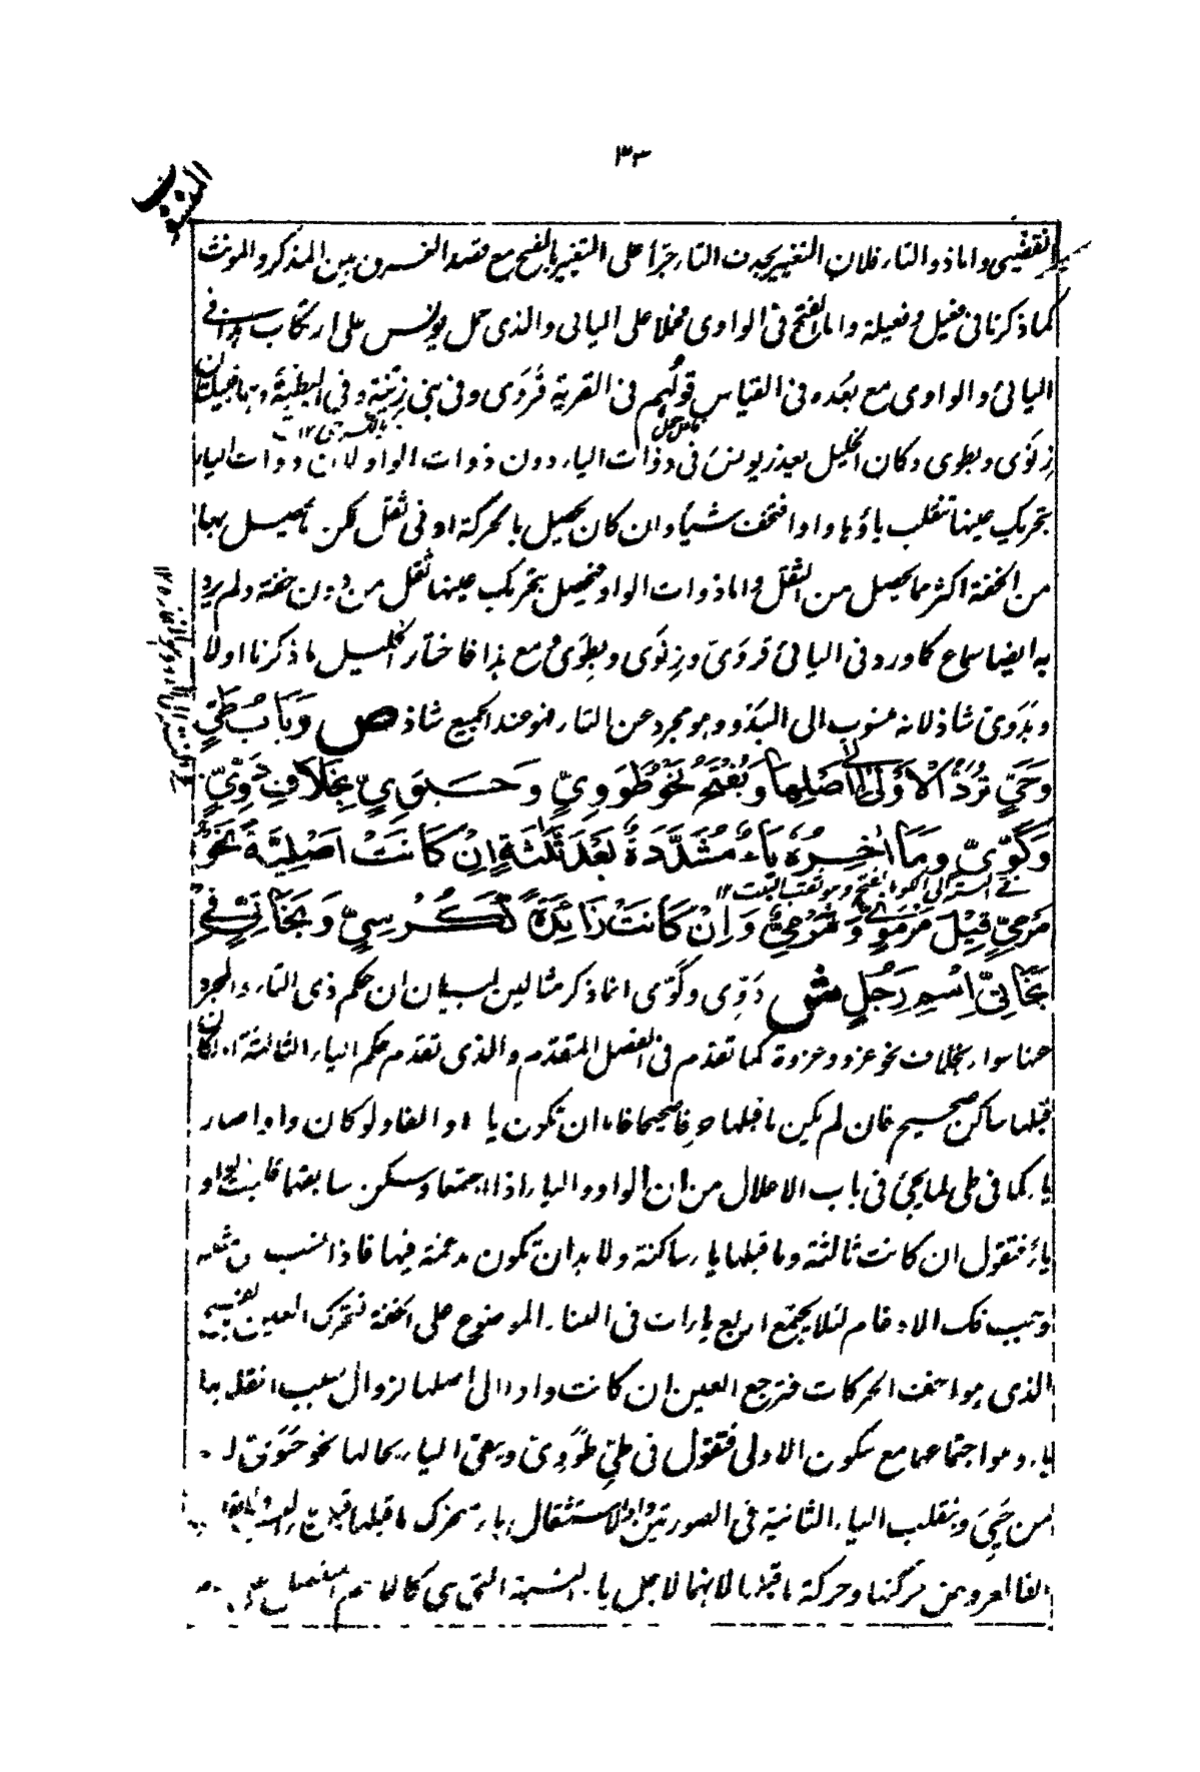 ٣٣
المنسوب
واما ذو التاء فلان التغيير بحذف التاء جرّأ على التغيير بالفتح مع قصد الفرق بين المذكر والمونث
كما ذكرنا فى فعيل وفعيلة واما الفتح فى الواوى فمحلا على اليائى والذى حمل يونس على ارتكاب هذا فى
اليائى والواوى مع بُعده فى القياس قولهم فى القرية قُرَوى وفى بنى زِنْيَة وفى البطية وهما قبيلتان
زِنَوى وبطوى وكان الخليل يعذر يونس فى ذوات الياء دون ذوات الواو لان ذوات الياء
بتحريك عينها تنقلب ياؤها واوا فتخف شيأ وان كان يحصل بالحركة ادنى ثقل لكن ما يحصل بها
من الخفة اكثر مما يحصل من الثقل واما ذوات الواو فيحصل بتحريك عينها ثقل من دون خفة ولم يرد
به ايضا سماع كما ورد فى اليائى قروَى وزِنَوى وبطِوَى ومع هذا فاختار الخليل ما ذكرنا اولا
وبَدَوىّ شاذ لانه منسوب الى البَدْو وهو مجرد عن التاء فهو عند الجميع شاذ ص وَبَابُ طَيٍّ
وَحَيٍّ تُرَدُّ الْاُوْلىٰ اِلىٰ اَصْلِهَا وَتُفْتَحُ نَحْوُ طَوَوِيٍّ وَحَيَوِيٍّ بِخِلَافِ دَوِّيٍّ
وَكَوِّيٍّ وَمَا اٰخِرُهٗ يَاءٌ مُشَدَّدَةٌ بَعْدَ ثَلٰثَةٍ اِنْ كَانَتْ اَصْلِيَّةً نَحْوُ
مَرْمِيٍّ قِيْلَ مَرْمَوِيٌّ وَ مَرْمِيٌّ وَاِنْ كَانَتْ زَائِدَةً كَكُرْسِيٍّ وَبَخَاتِيٍّ فِى
بَخَاتِيَّ اِسْمِ رَجُلٍ ش دَوِّى وكَوّى انما ذكر مثالين لبيان ان حكم ذى التاء والمجرد
هنا سواء بخلاف نحو غزو وغزوة كما تقدم فى الفصل المتقدم والذى تقدم حكم الياء الثالثة ان كان
قبلها ساكن صحيح فان لم يكن ما قبلها حرفا صحيحا فاما ان تكون ياء او الفا ولو كان واوا صار
ياء كما فى طى لما يجئ فى باب الاعلال من ان الواو والياء اذا اجتمعا وسكن سابقهما قلبت الواو
ياء فنقول ان كانت ثالثة وما قبلها ياء ساكنة ولا بد ان تكون مدغمة فيها فاذا نسب
وجب فك الادغام لئلا يجتمع اربع ياءات فى البناء الموضوع على الخفة فتحرك العين بالفتح
الذى هو اخف الحركات فترجع العين ان كانت واوا الى اصلها لزوال سبب انقلابها
ياء وهو اجتماعهما مع سكون الاولى فتقول فى طىّ طَوَوىّ وبقى الياء بحالها نحو حَيَوىّ
من حَىِىَ وتنقلب الياء الثانية فى الصورتين واوا
الفا لعروض حركتها وحركة ما قبلها لانهما لاجل ياء النسبة التى هى كالاسم المنفصل